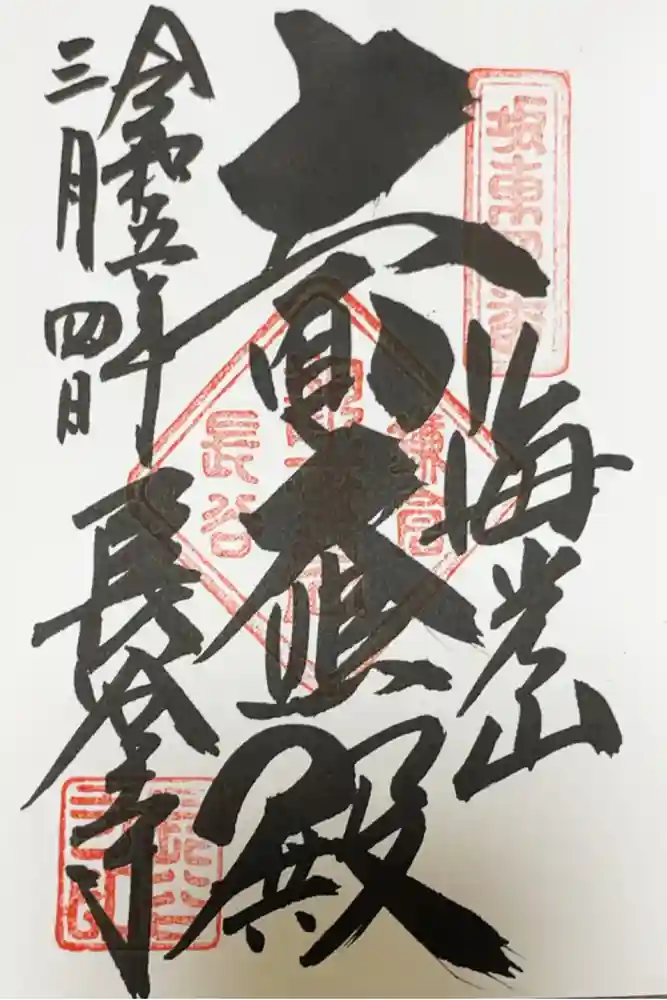 坂東四番
海光山
十一面大悲殿
鎌倉
長谷
長谷寺
令和五年
三月四日